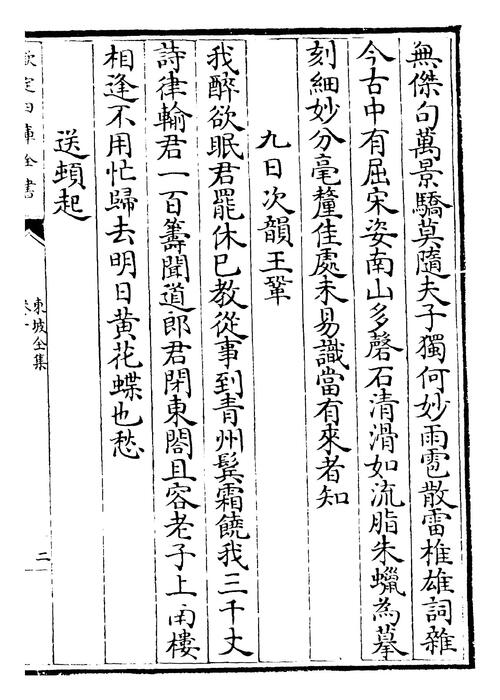 無傑句萬景驕莫隨夫子獨何妙雨雹散雷椎雄詞雜
今古中有屈宋姿南山多磬石清滑如流脂朱蠟為摹
刻細妙分毫釐佳處未易識當有來者知
九日次韻王鞏
我醉欲眠君罷休已教從事到青州鬂霜饒我三千丈
詩律輸君一百籌聞道郎君閉東閤且容老子上南樓
相逢不用忙歸去明日黄花蝶也愁
送頓起
欽定四庫全書
東坡全集
二